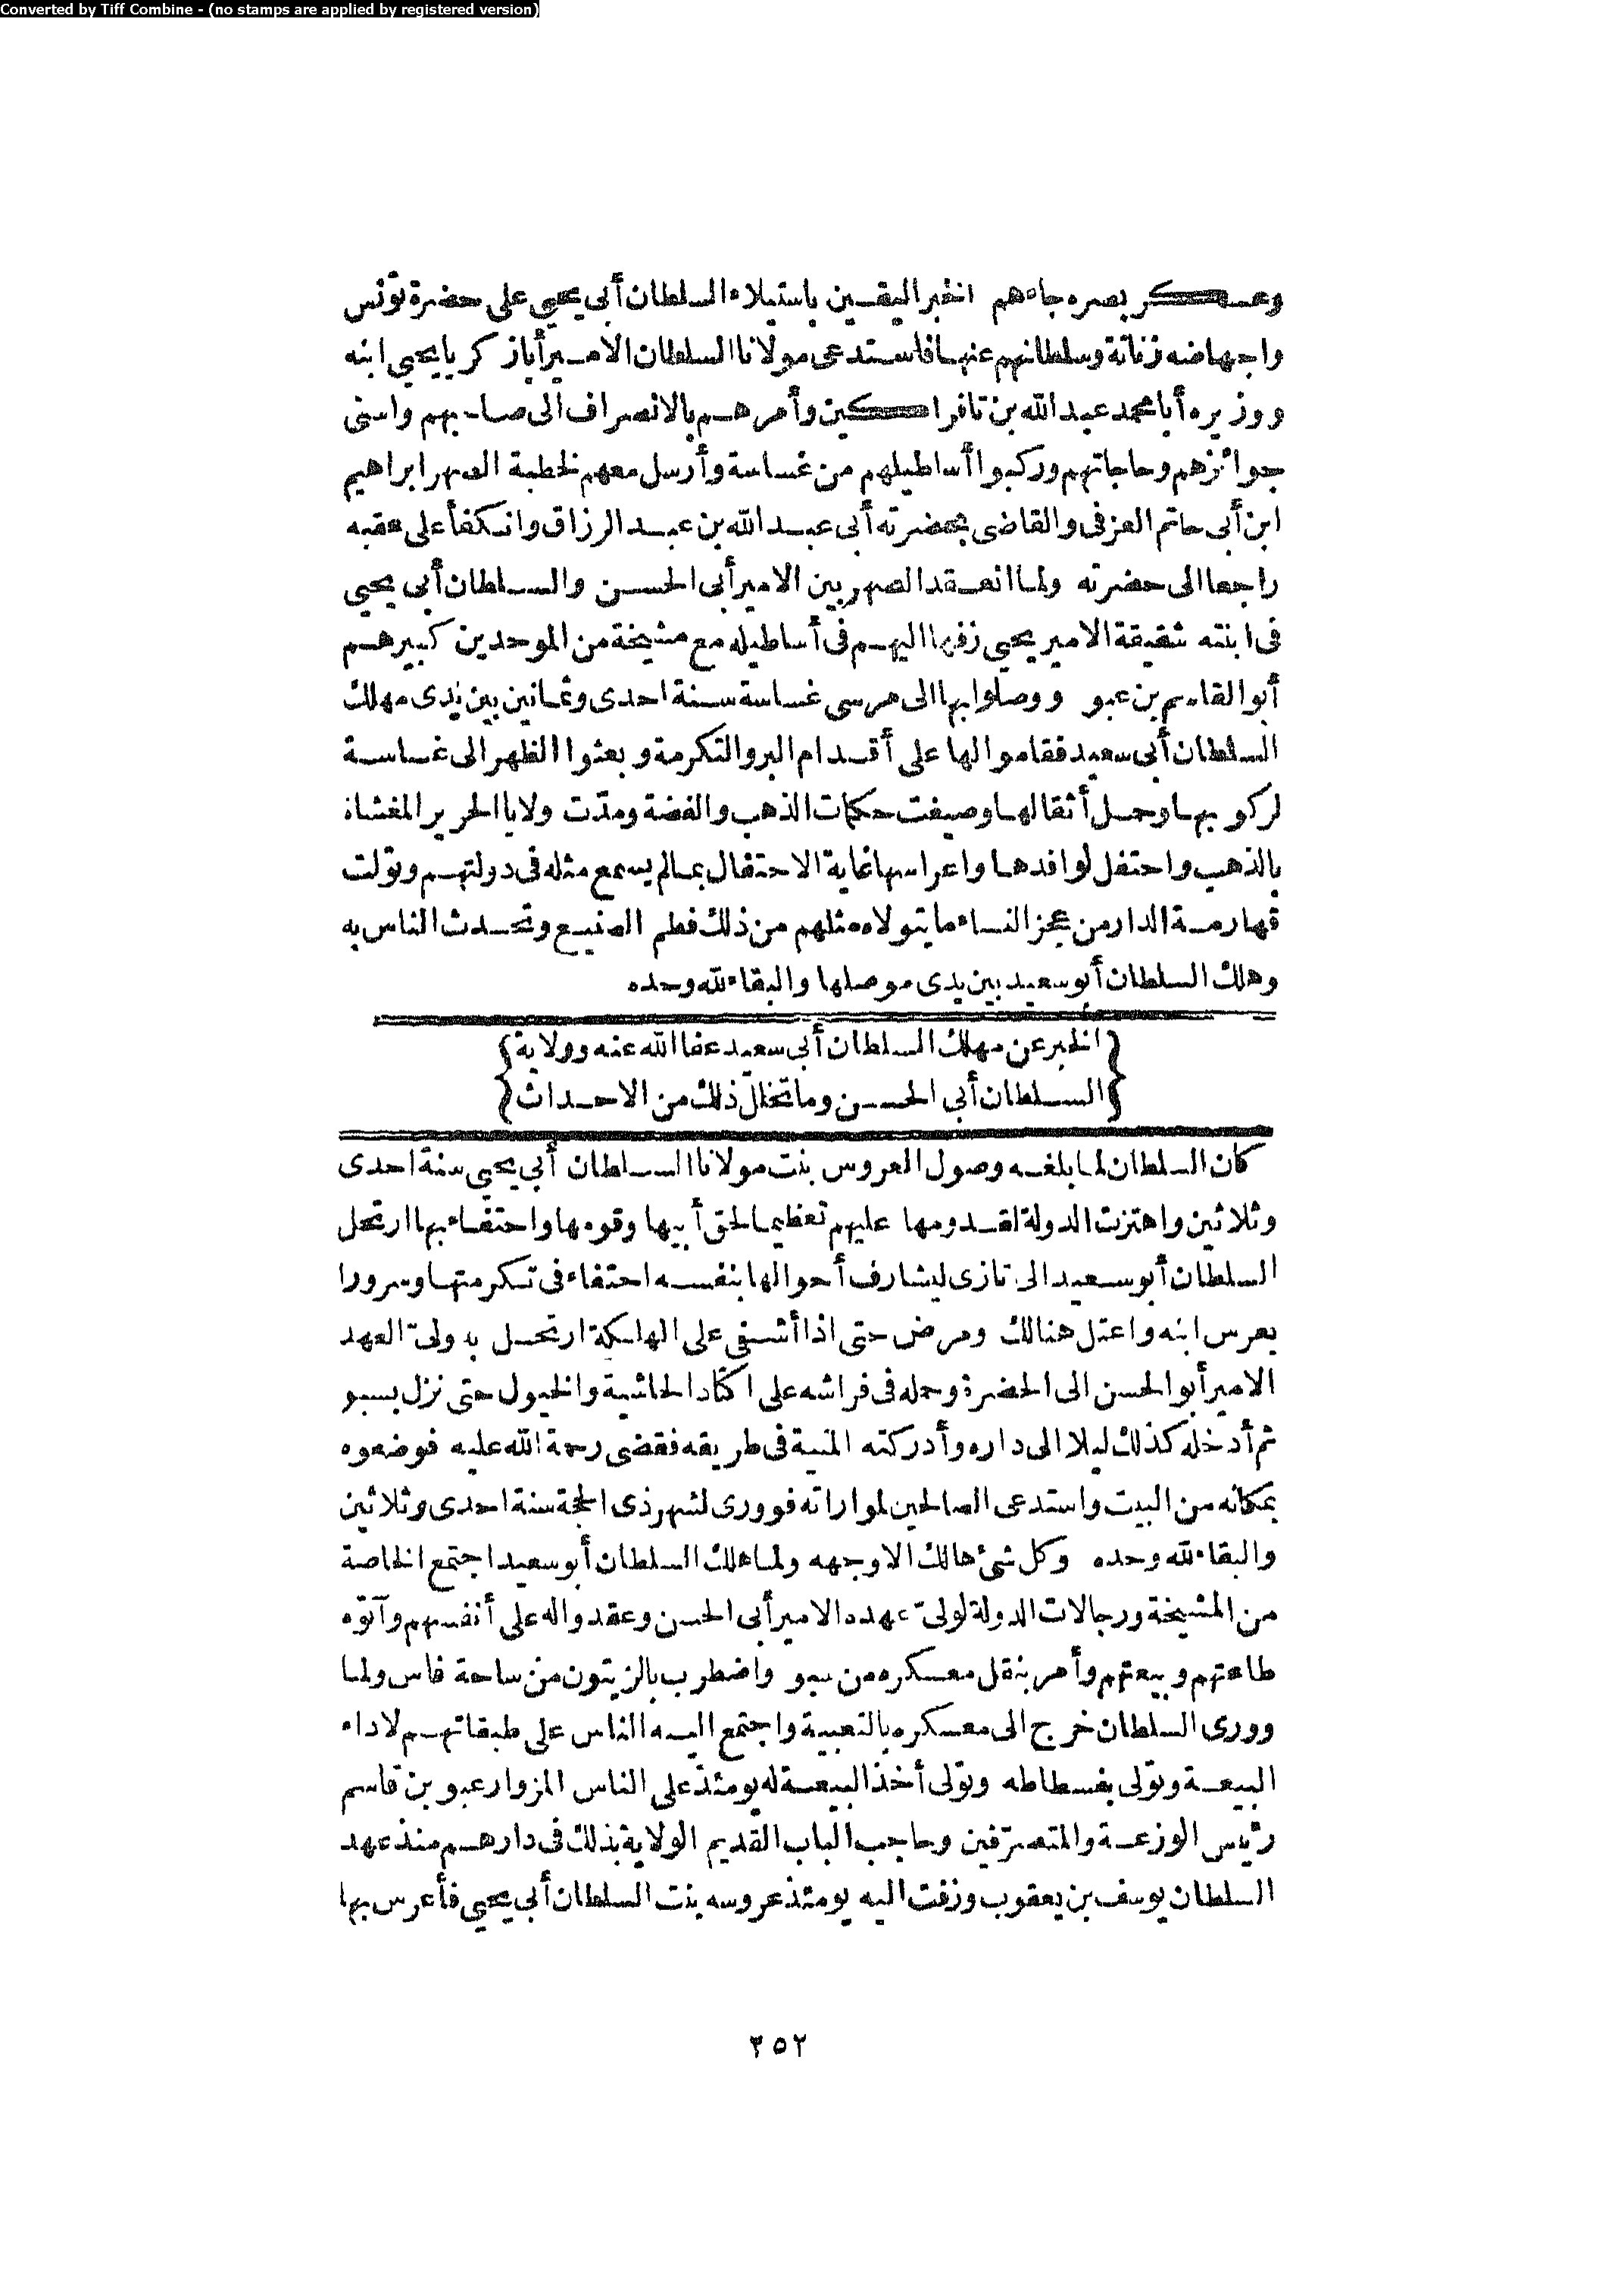 Converted by Tiff Combine - (no stamps are applied by registered version)
وعسكر بصره جاءهم الخبر اليقين باستيلاء السلطان أبي يحيى على حضرة تونس
واجهاضه زناتة وسلطانهم عنها فاستدعى مولانا السلطان الامير أبا زكريا يحيى ابنه
ووزيره أبا محمد عبد الله بن تافراكين وأمرهم بالانصراف الى صاحبهم واسنى
جوائزهم وحاجاتهم وركبوا أساطيلهم من غساسة وأرسل معهم لخطبة الصهر ابراهيم
ابن أبى حاتم العزفى والقاضى بحضرته أبى عبد الله بن عبد الرزاق وانكفأ على عقبه
راجعا الى حضرته ولما انعقد الصهر بين الامير أبى الحسن والسلطان أبى يحيى
فى ابنته شقيقة الامير يحيى زفها اليهم فى أساطيله مع مشيخة من الموحدين كبيرهم
أبو القاسم بن عبو ووصلوا بها الى مرسى غساسة سنة احدى وثمانين بين يدى مهلك
السلطان أبى سعيد فقاموا لها على أقدام البر والتكرمة وبعثوا الظهر الى غساسة
لركوبها وحمل أثقالها وصيغت حكمات الذهب والفضة ومدّت ولايا الحرير المغشاة
بالذهب واحتفل لوافدها واعراسها غاية الاحتفال بما لم يسمع مثله فى دولتهم وتولت
قهارمة الدار من عجز النساء ما يتولاه مثلهم من ذلك فطم الصنيع وتحدث الناس به
وهلك السلطان أبو سعيد بين يدى موصلها والبقاء لله وحده
{الخبر عن مهلك السلطان أبى سعيد عفا الله عنه وولاية}
{السلطان أبى الحسن وما تخلل ذلك من الاحداث}
كان السلطان لما بلغه وصول العروس بنت مولانا السلطان أبى يحيى سنة احدى
وثلاثين واهتزت الدولة لقدومها عليهم تعظيما لحق أبيها وقومها واحتفاء بها ارتحل
السلطان أبو سعيد الى تازى ليشارف أحوالها بنفسه احتفاء فى تكرمتها وسرورا
بعرس ابنه واعتل هنالك ومرض حتى اذا أشفى على الهلكة ارتحل به ولىّ العهد
الامير أبو الحسن الى الحضرة وحمله فى فراشه على اكتاد الحاشية والخيول حتى نزل بسبو
ثم أدخله كذلك ليلا الى داره وأدركته المنية فى طريقه فقضى رحمة الله عليه فوضعوه
بمكانه من البيت واستدعى الصالحين لمواراته فوورى لشهر ذى الحجة سنة احدى وثلاثين
والبقاء لله وحده وكل شئ هالك الا وجهه ولما هلك السلطان أبو سعيد اجتمع الخاصة
من المشيخة ورجالات الدولة لولىّ عهده الامير أبى الحسن وعقدوا له على أنفسهم وآتوه
طاعتهم وبيعتهم وأمر بنقل معسكره من سبو واضطرب بالزيتون من ساحة فاس ولما
وورى السلطان خرج الى معسكره بالتعبية واجتمع اليه الناس على طبقاتهم لاداء
البيعة وتولى بفسطاطه وتولى أخذ البيعة له يومئذ على الناس المزوار عبو بن قاسم
رئيس الوزعة والمتصرّفين وحاجب الباب القديم الولاية بذلك فى دارهم منذ عهد
السلطان يوسف بن يعقوب وزفت اليه يومئذ عروسه بنت السلطان أبى يحيى فأعرس بها
٢٥٢